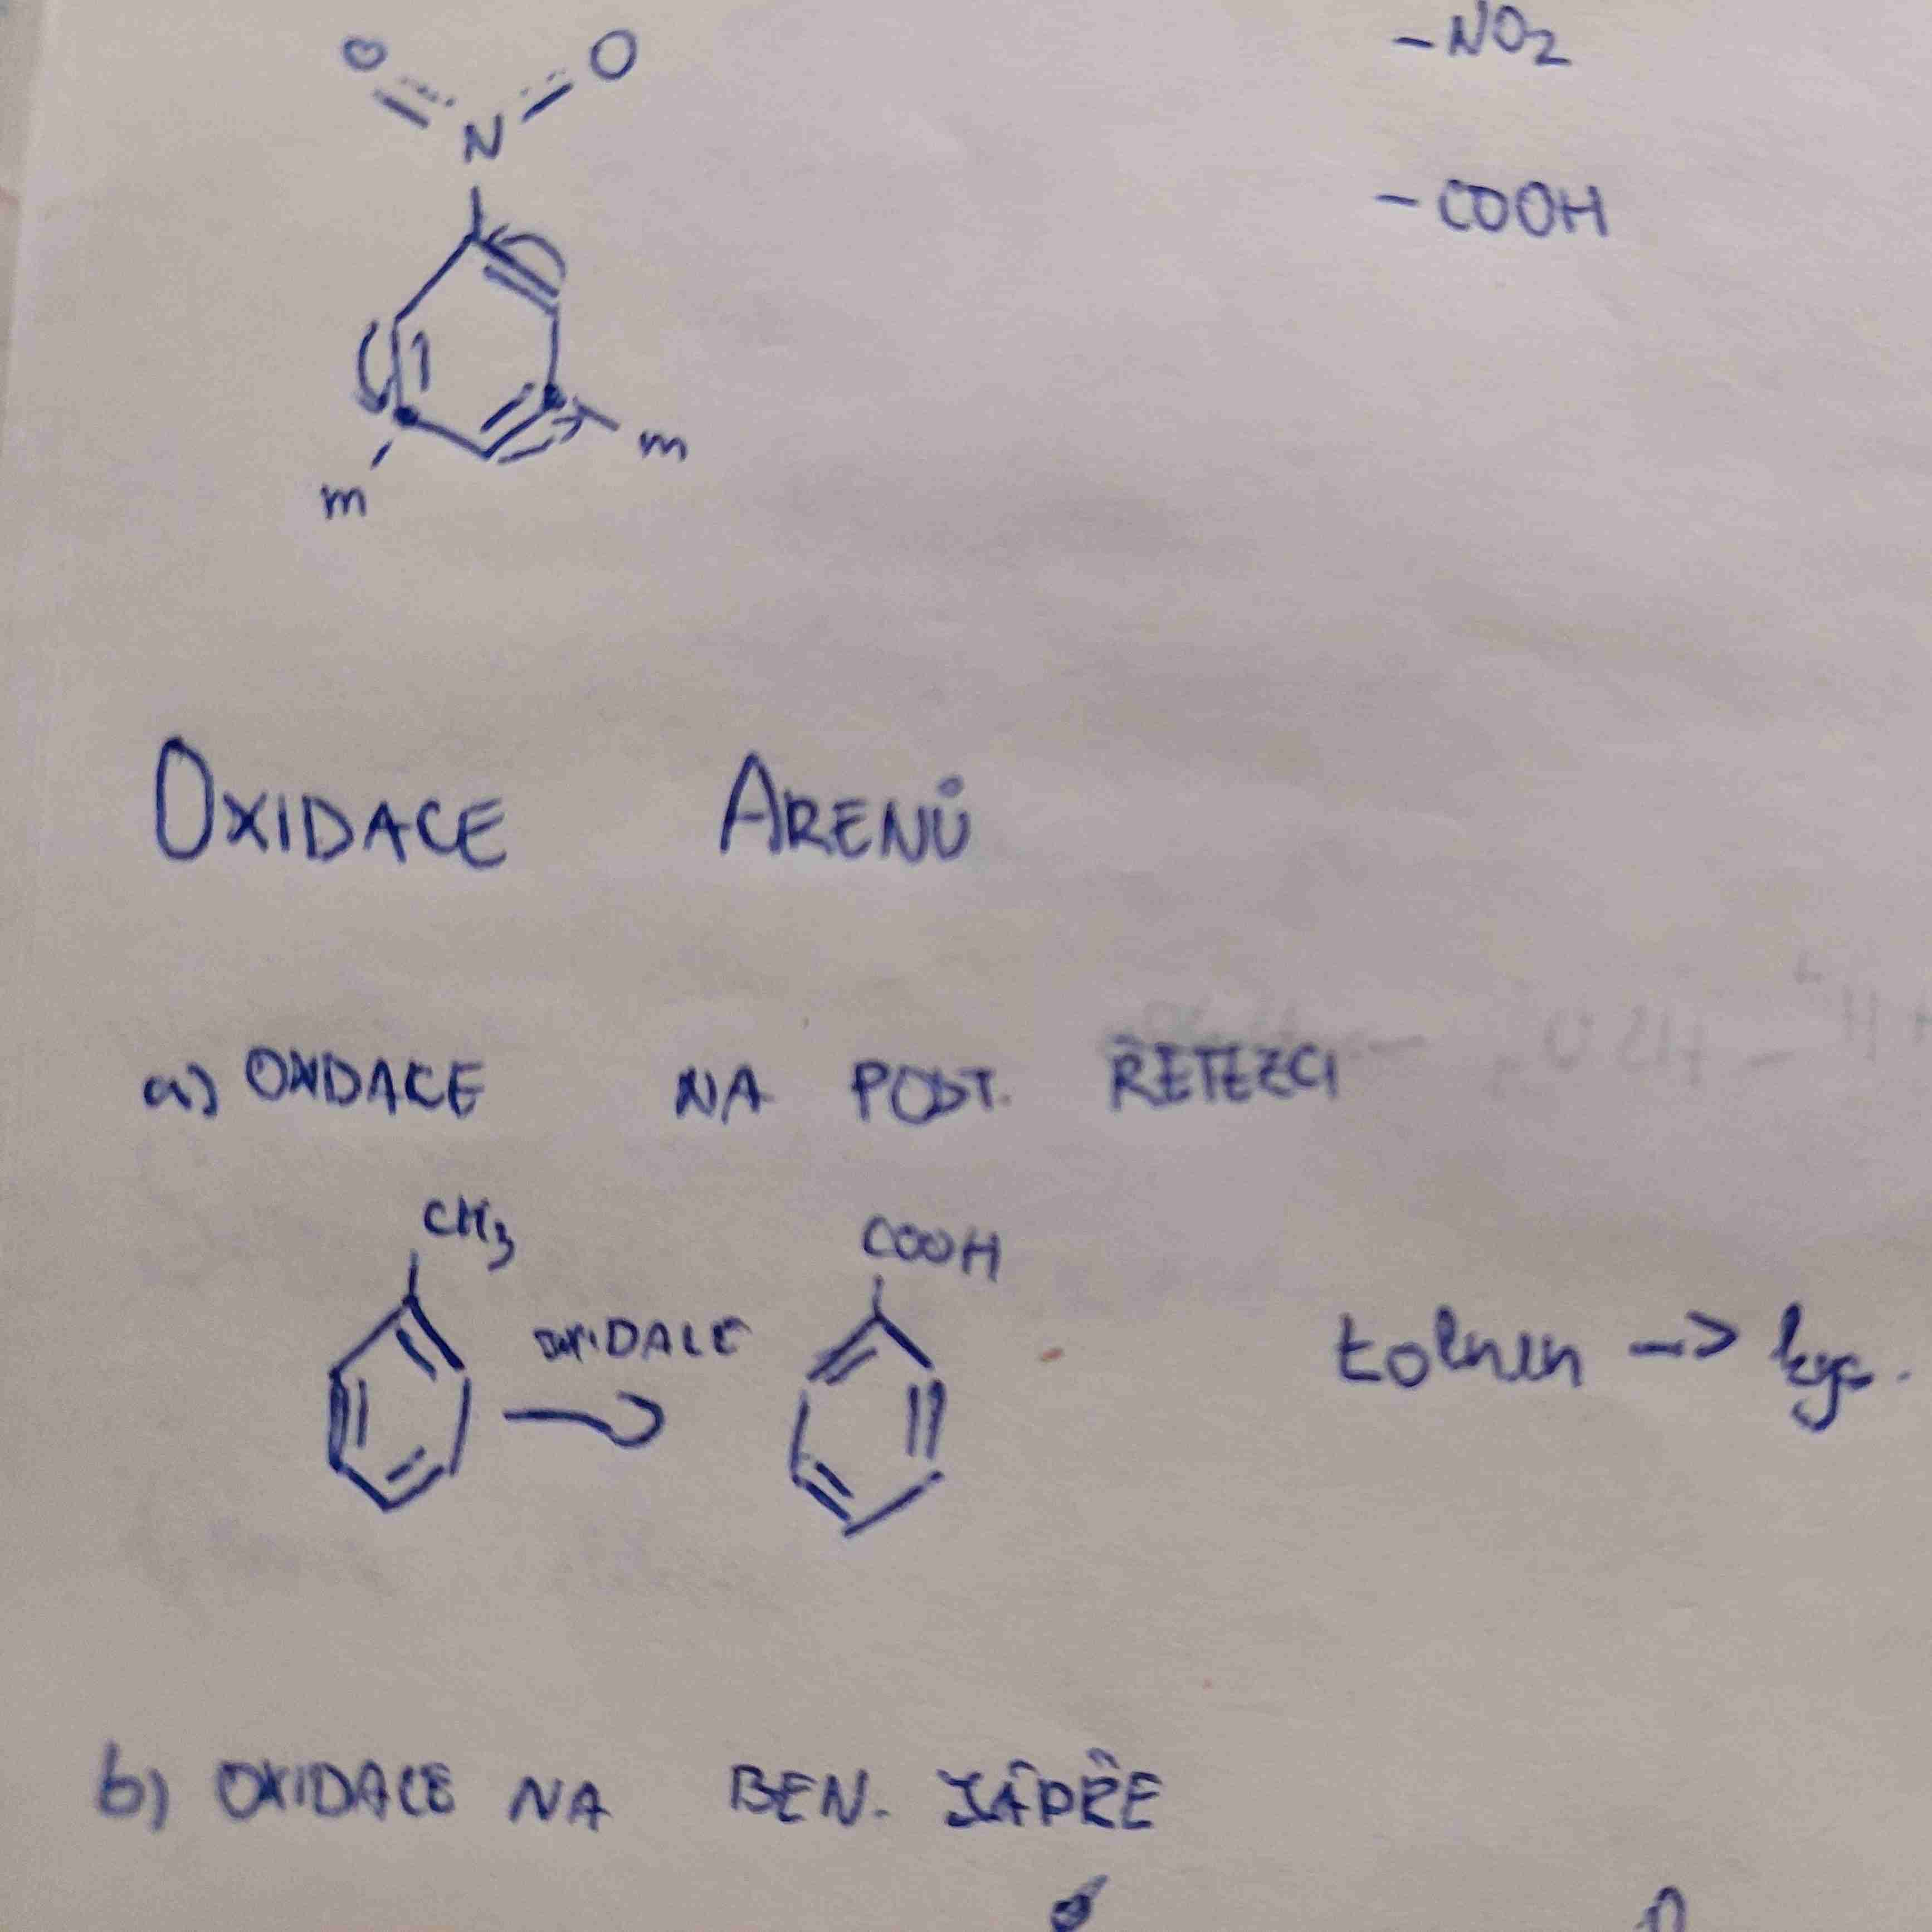 O O
N
-NO2
-COOH
m
m
OXIDACE ARENŮ
a) OXIDACE NA POST. ŘETEZCI
CH3
COOH
OXIDACE
toluen -> kys.
b) OXIDACE NA BEN. JÁDŘE